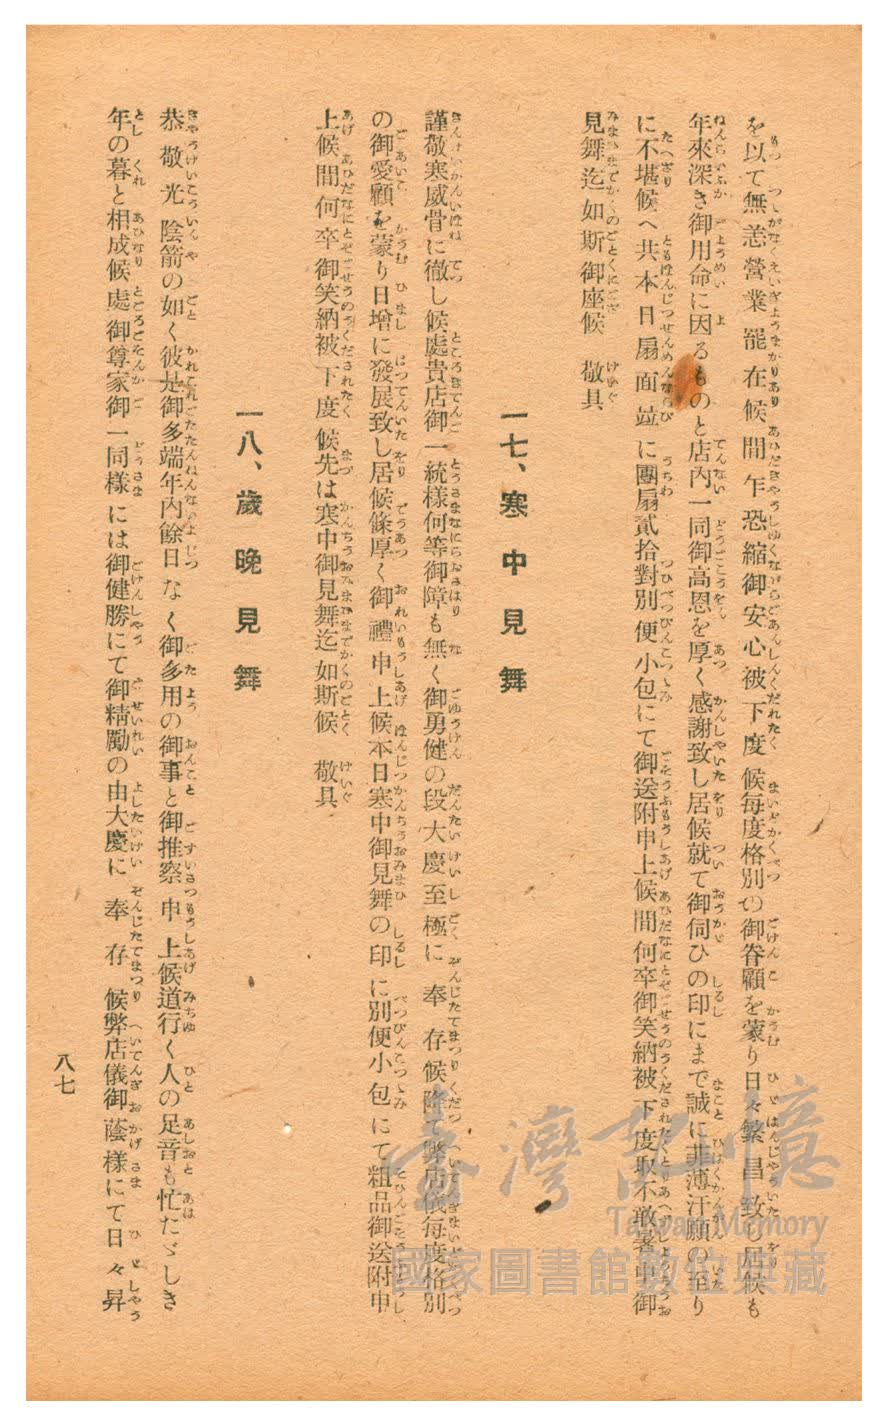 を以て無恙營業罷在候間乍恐縮御安心被下度候每度格別の御眷顧を蒙り日々繁昌致し居候も
年來深き御用命に因るものと店內一同御高恩を厚く感謝致し居候就て御伺ひの印にまで誠に菲薄汗顏の至り
に不堪候へ共本日扇面竝に團扇貳拾對別便小包にて御送附申上候間何卒御笑納被下度取不敢暑中御
見舞迄如斯御座候 敬具
一七、寒中見舞
謹敬寒威骨に徹し候處貴店御一統樣何等御障も無く御勇健の段大慶至極に奉存候降て弊店儀每度格別
の御愛顧を蒙り日增に發展致し居候條厚く御禮申上候本日寒中御見舞の印に別便小包にて粗品御送附申
上候間何卒御笑納被下度候先は寒中御見舞迄如斯候 敬具
一八、歲晚見舞
恭敬光陰箭の如く彼是御多端年內餘日なく御多用の御事と御推察申上候道行く人の足音も忙たゞしき
年の暮と相成候處御尊家御一同樣には御健勝にて御精勵の由大慶に奉存候弊店儀御蔭樣にて日々昇
八七
臺灣記憶
Taiwan Memory
國家圖書館數位典藏